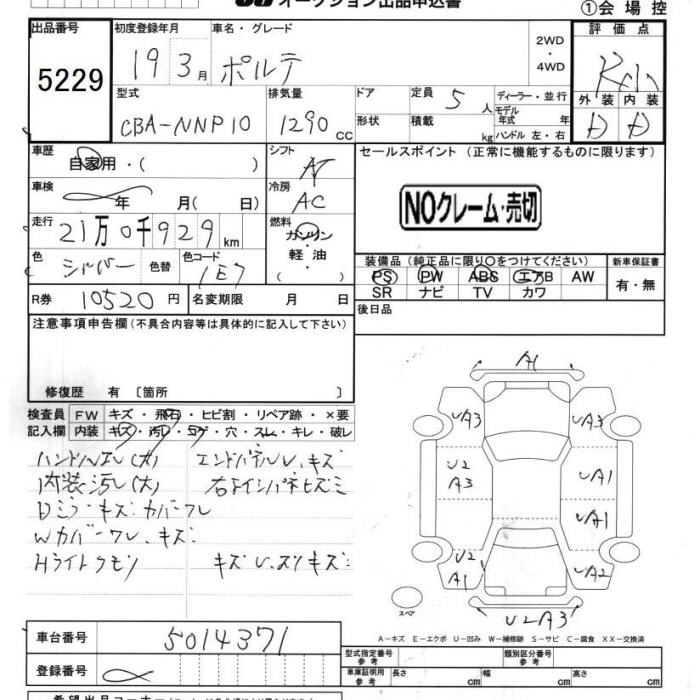 オークション出品申込書
①会場控
出品番号
5229
初度登録年月 車名・グレード
19 3月 ポルテ
2WD
・
4WD
評価点
外装 内装
D D
型式 排気量
CBA-NNP10 1290cc
ドア 定員 5人
形状 積載 kg
ディーラー・並行
モデル年式 年
ハンドル 左・右
車歴
自家用・( )
シフト
AT
セールスポイント (正常に機能するものに限ります)
NOクレーム・売切
車検
年 月( 日)
冷房
AC
走行
21万0千929km
燃料
ガソリン
・
軽油
( )
色
シルバー
色替 色コード
1E7
装備品(純正品に限り○をつけてください) 新車保証書
PS PW ABS エアB AW
SR ナビ TV カワ
有・無
R券 10520円 名変期限 月 日
後日品
注意事項申告欄(不具合内容等は具体的に記入して下さい)
修復歴 有 〔箇所 〕
検査員 FW キズ・飛石・ヒビ割・リペア跡・×要
記入欄 内装 キズ・汚レ・コゲ・穴・スレ・キレ・破レ
ハンドルスレ(大) エンドパネルU、キズ
内装汚レ(大)
Dミラーキズカバーワレ
Wカバーワレ、キズ
Hライトクモリ
A1
UA3 UA3
U2
A3
UA1
UA1
U2
A1
UA2
U2A3
スペア
A−キズ E−エクボ U−凹み W−補修跡 S−サビ C−腐食 XX−交換済
車台番号
5014371
登録番号
型式指定番号
参考
類別区分番号
参考
車庫証明用
参考
長さ cm 幅 cm 高さ cm